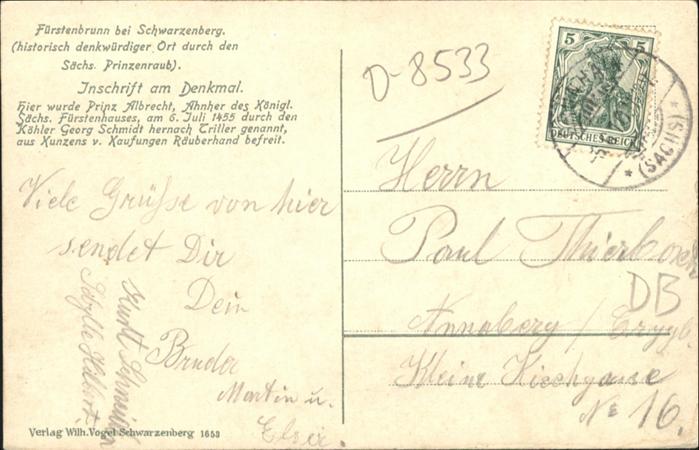 Fürstenbrunn bei Schwarzenberg.
(historisch denkwürdiger Ort durch den
Sächs. Prinzenraub).
Inschrift am Denkmal.
Hier wurde Prinz Albrecht, Ahnherr des Königl.
Sächs. Fürstenhauses, am 6. Juli 1455 durch den
Köhler Georg Schmidt hernach Triller genannt,
aus Kunzens v. Kaufungen Räuberhand befreit.
Viele Grüsse von hier
sendet Dir
Dein
Bruder
Martin u.
Kurt
Verlag Wilh. Vogel Schwarzenberg 1653
D-8533
5 5
DEUTSCHES REICH
* (SACHS) *
Herrn
Paul
DB
Annaberg / Erzgb.
Kleine Kirchgasse
No 16.